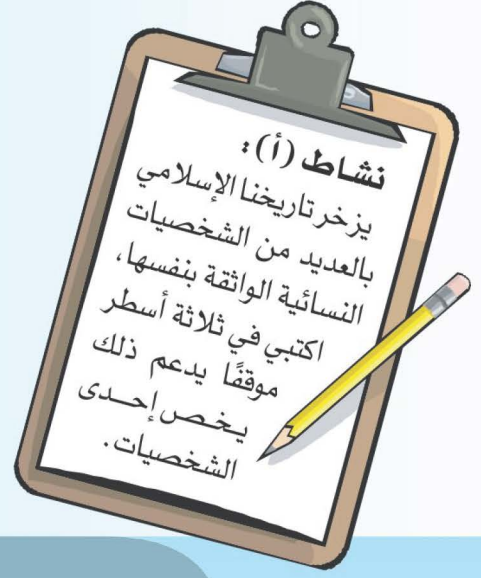 نشاط (أ):
يزخر تاريخنا الإسلامي
بالعديد من الشخصيات
النسائية الواثقة بنفسها،
اكتبي في ثلاثة أسطر
موقفًا يدعم ذلك
يخص إحدى
الشخصيات.